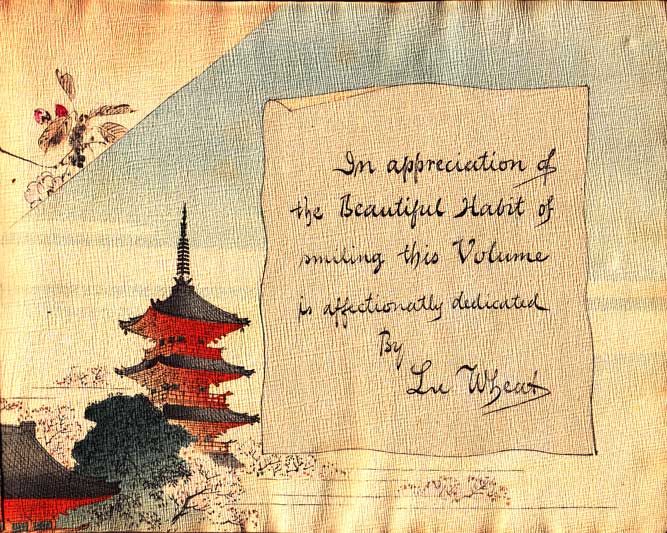 In appreciation of
the Beautiful Habit of
smiling this Volume
is affectionatly dedicated
By
Lu Wheat